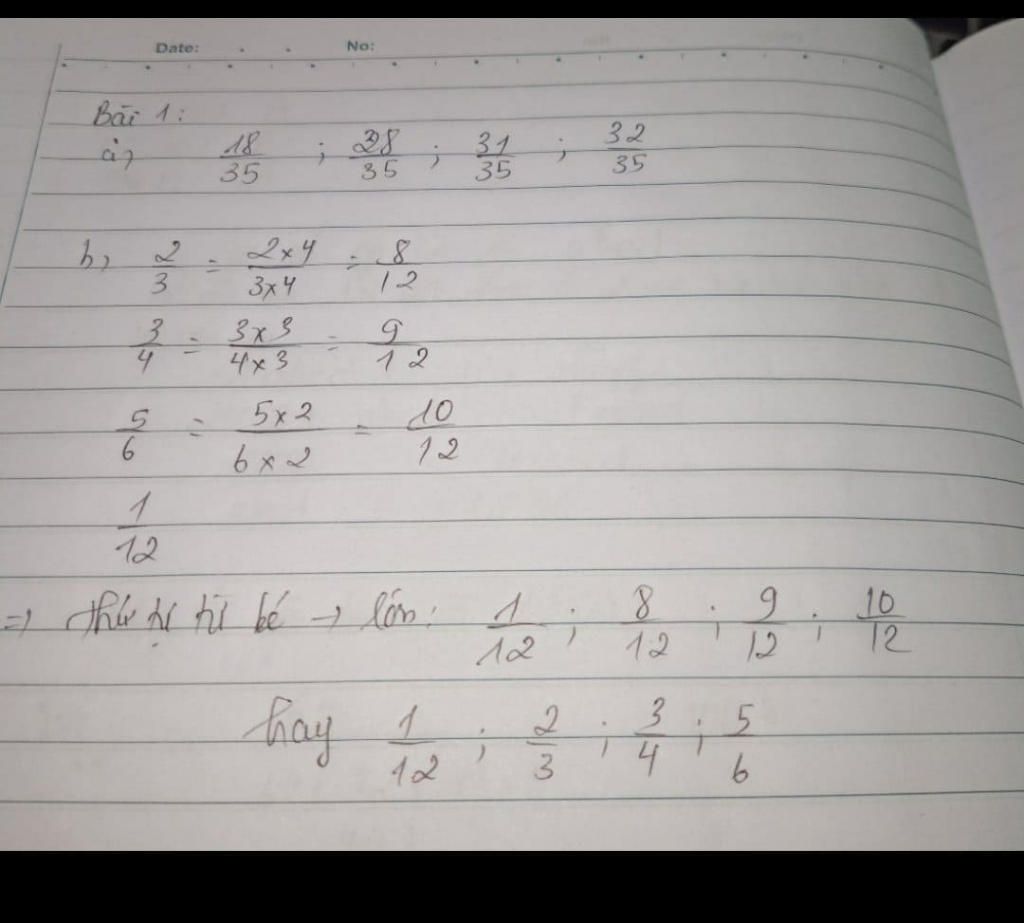 Date: No:
Bài 1:
a, 18/35 ; 28/35 ; 31/35 ; 32/35
b, 2/3 = 2×4/3×4 = 8/12
3/4 = 3×3/4×3 = 9/12
5/6 = 5×2/6×2 = 10/12
1/12
=> thứ tự từ bé → lớn: 1/12 ; 8/12 ; 9/12 ; 10/12
hay 1/12 ; 2/3 ; 3/4 ; 5/6